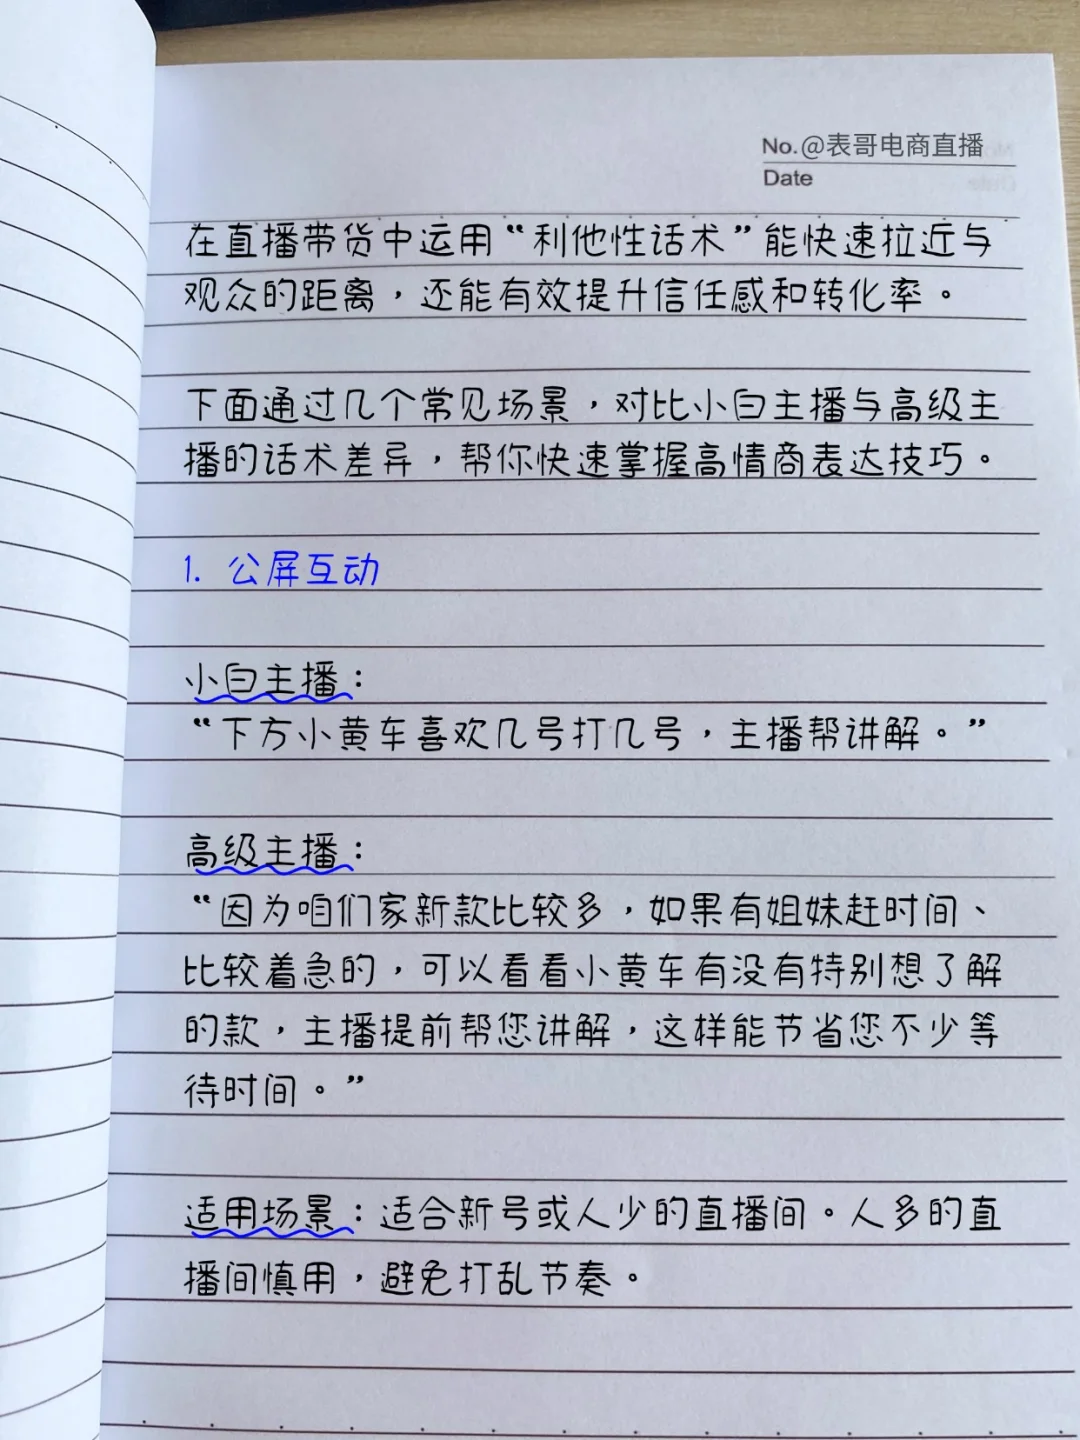 No.@表哥电商直播
Date
在直播带货中运用“利他性话术”能快速拉近与
观众的距离，还能有效提升信任感和转化率。
下面通过几个常见场景，对比小白主播与高级主
播的话术差异，帮你快速掌握高情商表达技巧。
1. 公屏互动
小白主播：
“下方小黄车喜欢几号打几号，主播帮讲解。”
高级主播：
“因为咱们家新款比较多，如果有姐妹赶时间、
比较着急的，可以看看小黄车有没有特别想了解
的款，主播提前帮您讲解，这样能节省您不少等
待时间。”
适用场景：适合新号或人少的直播间。人多的直
播间慎用，避免打乱节奏。